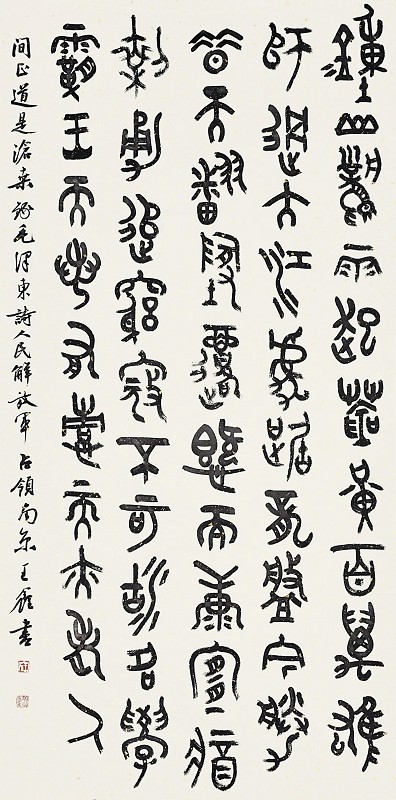 鐘山風雨起蒼黃百萬雄
師過大江虎踞龍盤今勝
昔天翻地覆慨而慷宜將
剩勇追窮寇不可沽名學
霸王天若有情天亦老人
間正道是滄桑錄毛澤東詩人民解放軍占領南京王鏞書